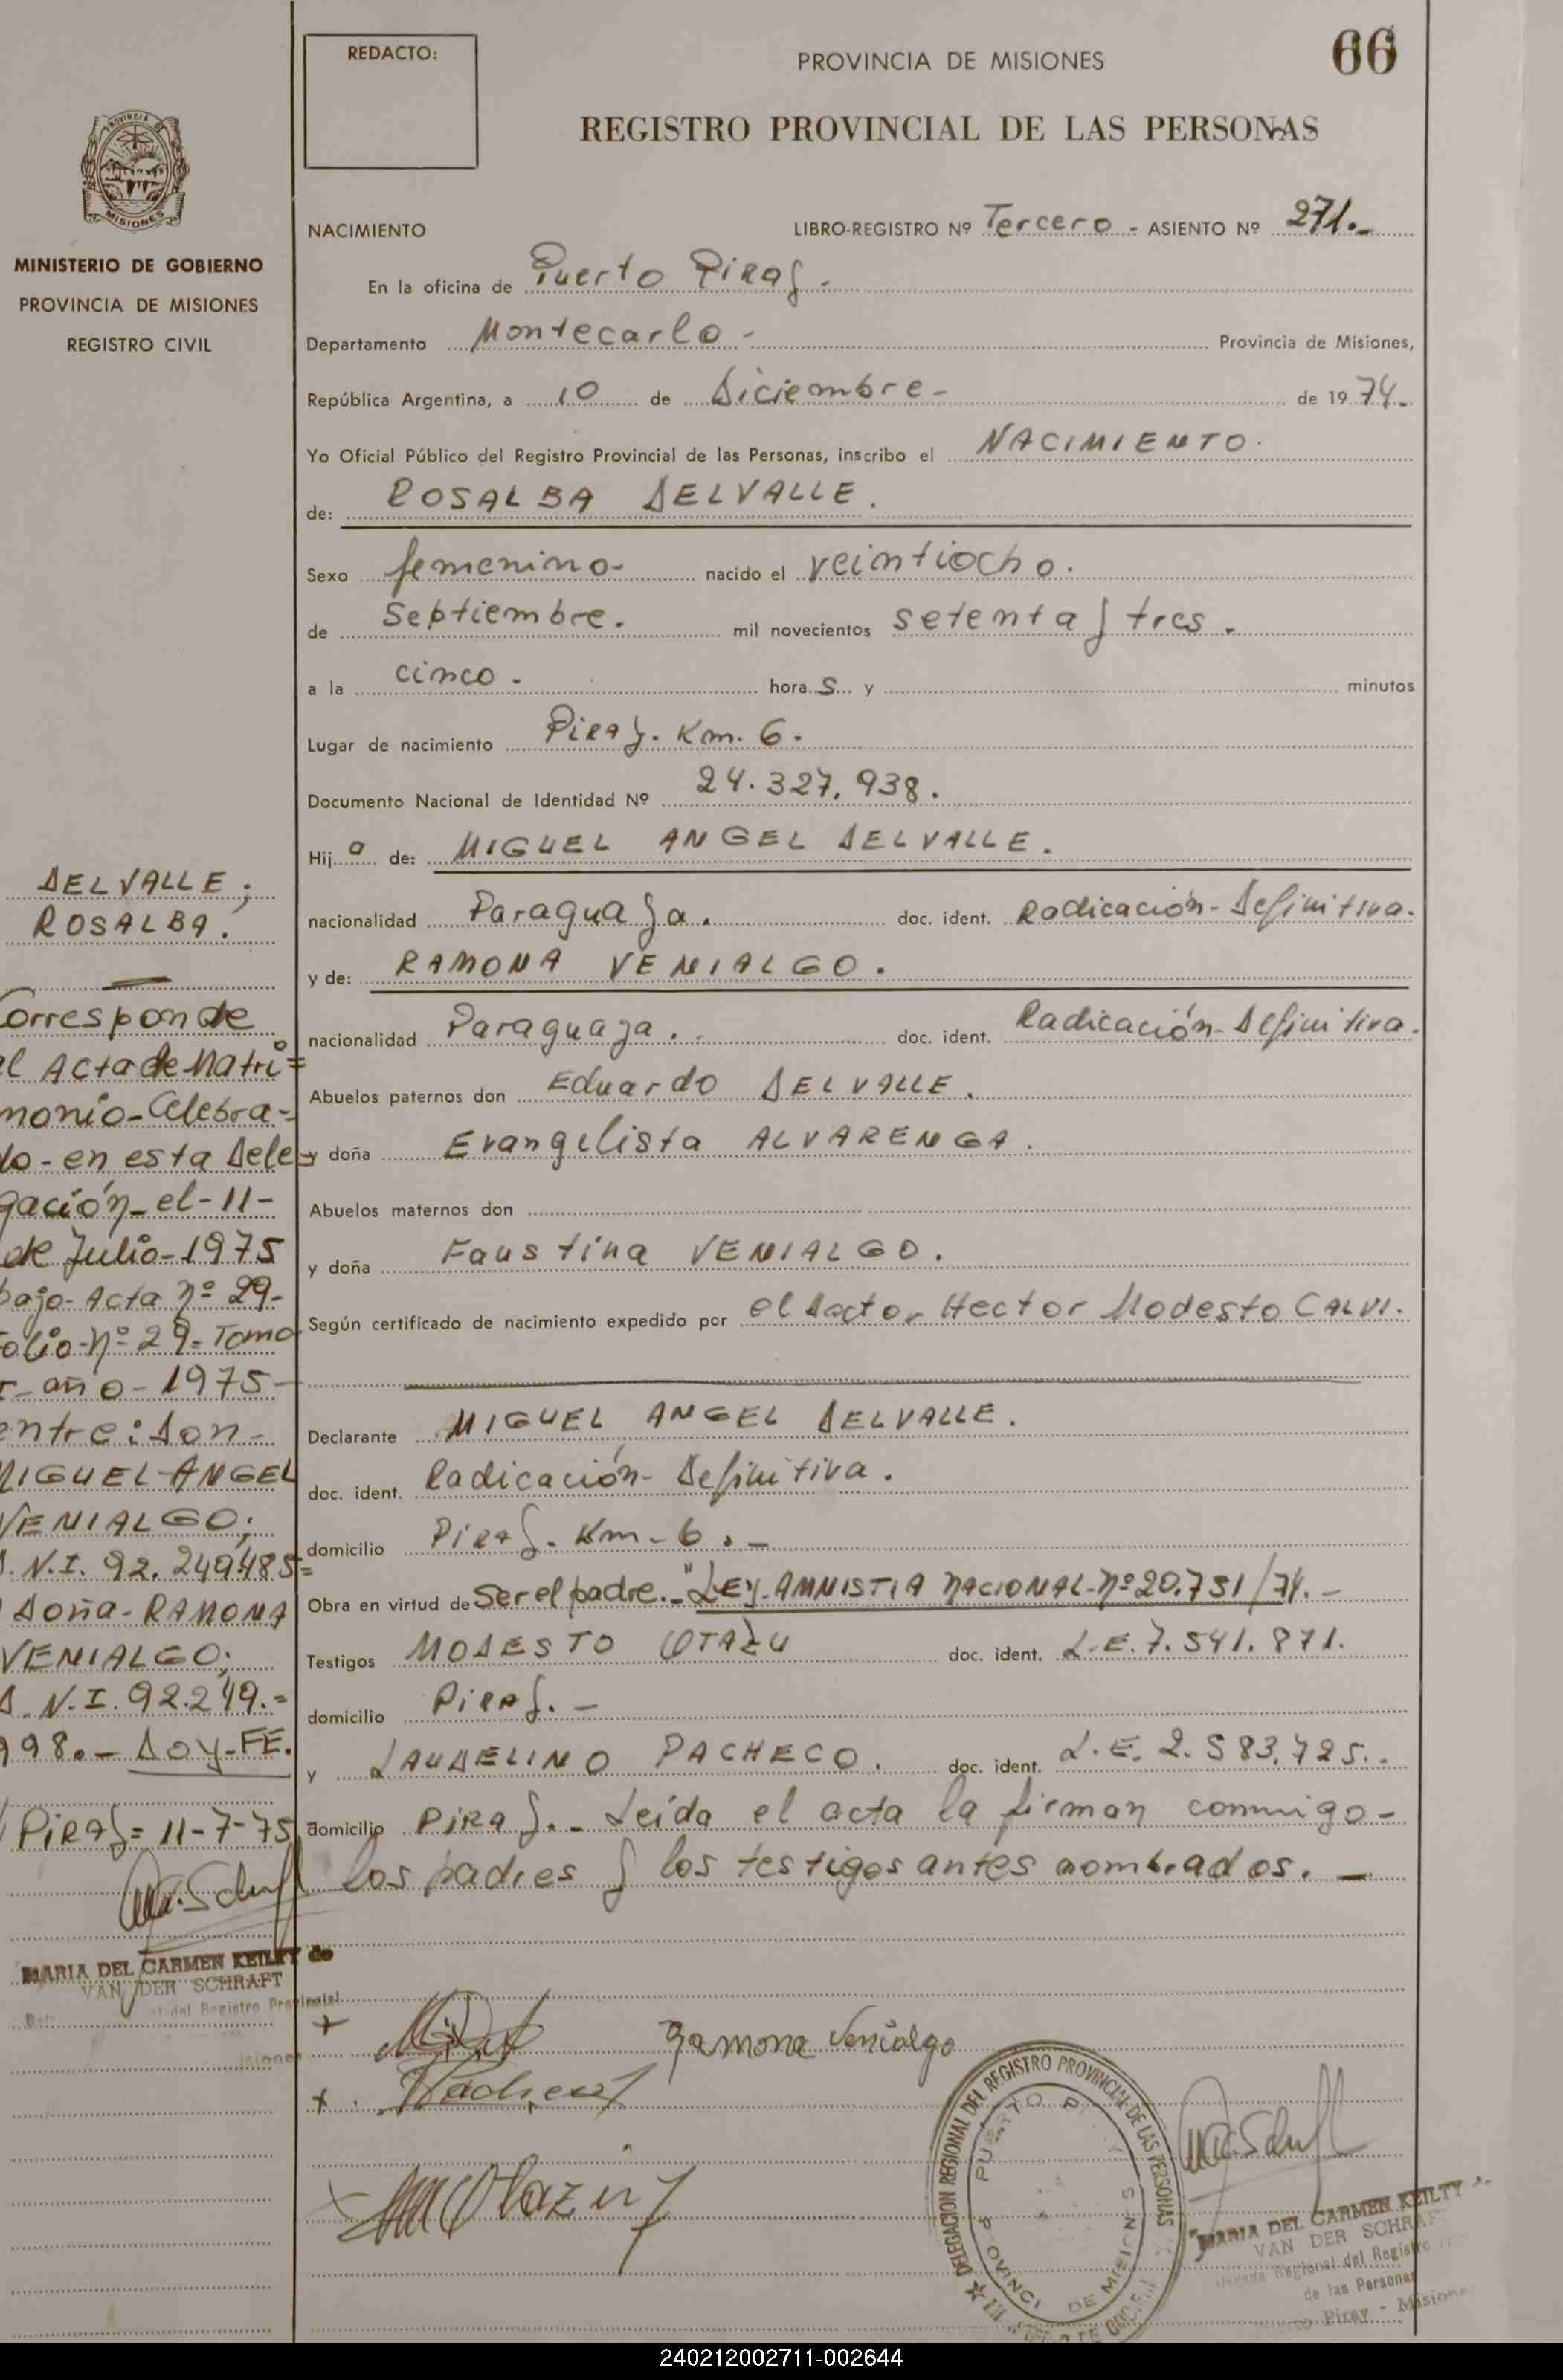 REDACTO:
PROVINCIA DE MISIONES
66
REGISTRO PROVINCIAL DE LAS PERSONAS
PROVINCIA DE
MISIONES
MINISTERIO DE GOBIERNO
PROVINCIA DE MISIONES
REGISTRO CIVIL
NACIMIENTO LIBRO-REGISTRO Nº Tercero - ASIENTO Nº 271.-
En la oficina de Puerto Piray.
Departamento Montecarlo - Provincia de Misiones,
República Argentina, a 10 de Diciembre - de 1974.-
Yo Oficial Público del Registro Provincial de las Personas, inscribo el NACIMIENTO.
de: ROSALBA DELVALLE.
Sexo femenino- nacido el veintiocho.
de Septiembre. mil novecientos setenta y tres.
a la cinco. hora s y minutos
Lugar de nacimiento Piray. Km. 6.
Documento Nacional de Identidad Nº 24.327.938.
Hij a de: MIGUEL ANGEL DELVALLE.
nacionalidad Paraguaya. doc. ident. Radicación-Definitiva.
y de: RAMONA VENIALGO.
nacionalidad Paraguaya. doc. ident. Radicación-Definitiva.
Abuelos paternos don Eduardo DELVALLE.
y doña Evangelista ALVARENGA.
Abuelos maternos don
y doña Faustina VENIALGO.
Según certificado de nacimiento expedido por el doctor Hector Modesto CALVI.
Declarante MIGUEL ANGEL DELVALLE.
doc. ident. Radicación-Definitiva.
domicilio Piray. Km-6.-
Obra en virtud de Ser el padre.-"LEY-AMNISTIA NACIONAL-Nº20.751/74.-
Testigos MODESTO OTAZU doc. ident. L.E. 7.541.871.
domicilio Piray.-
y LAUDELINO PACHECO. doc. ident. L.E. 2.583.725.
domicilio Piray.- Leída el acta la firman conmigo-
los padres y los testigos antes nombrados.-
DELVALLE;
ROSALBA.
orresponde
l Acta de Matri=
monio-Celebra-
do-en esta Dele=
gación-el-11-
de Julio-1975
bajo-Acta nº 29-
olio-nº 29-Tomo
año-1975-
entre: don-
MIGUEL-ANGEL
VENIALGO;
.N.I. 92.249.485=
doña-RAMONA
VENIALGO;
D.N.I. 92.249.=
998.-DOY-FE.
Piray=11-7-75
MARIA DEL CARMEN KEILTY de
VAN DER SCHRAFT
del Registro Provincial
isiones
Ramona Venialgo
Pacheco
DELEGACION REGIONAL DEL REGISTRO PROVINCIAL DE LAS PERSONAS
PUERTO P
DE MISIONES
MARIA DEL CARMEN KEILTY
VAN DER SCHRAF
Regional del Registro
de las Personas
Piray - Misiones
240212002711-002644